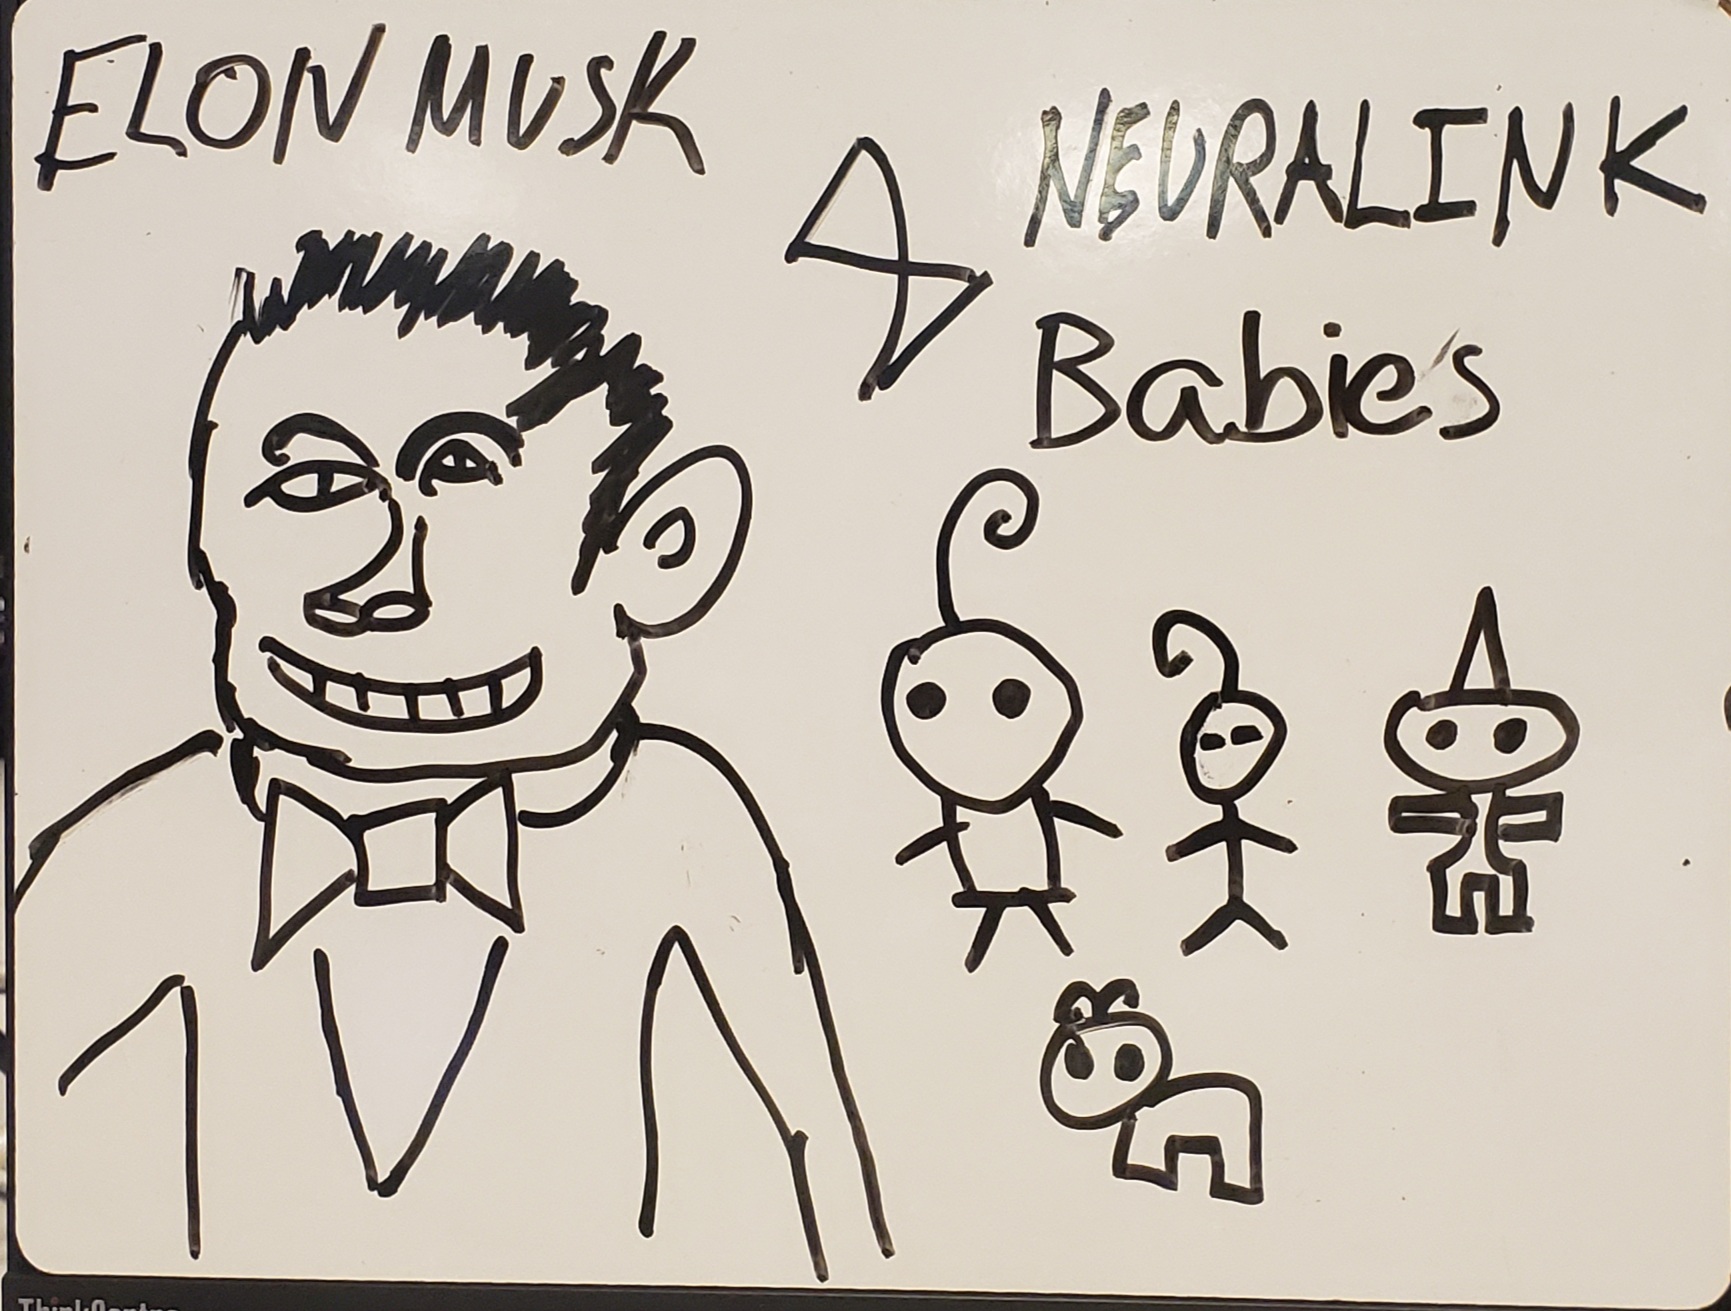 ELON MUSK
NEURALINK
Babies
ThinkCentre